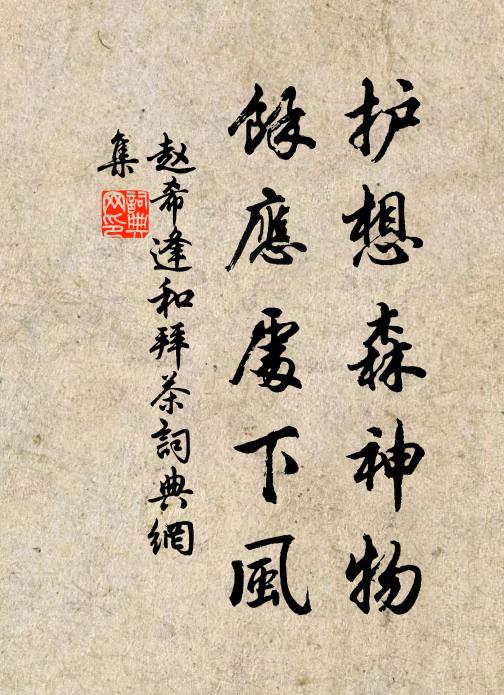 护想森神物
餘應處下風
赵希逢和拜茶詞典網
集
詞典網印